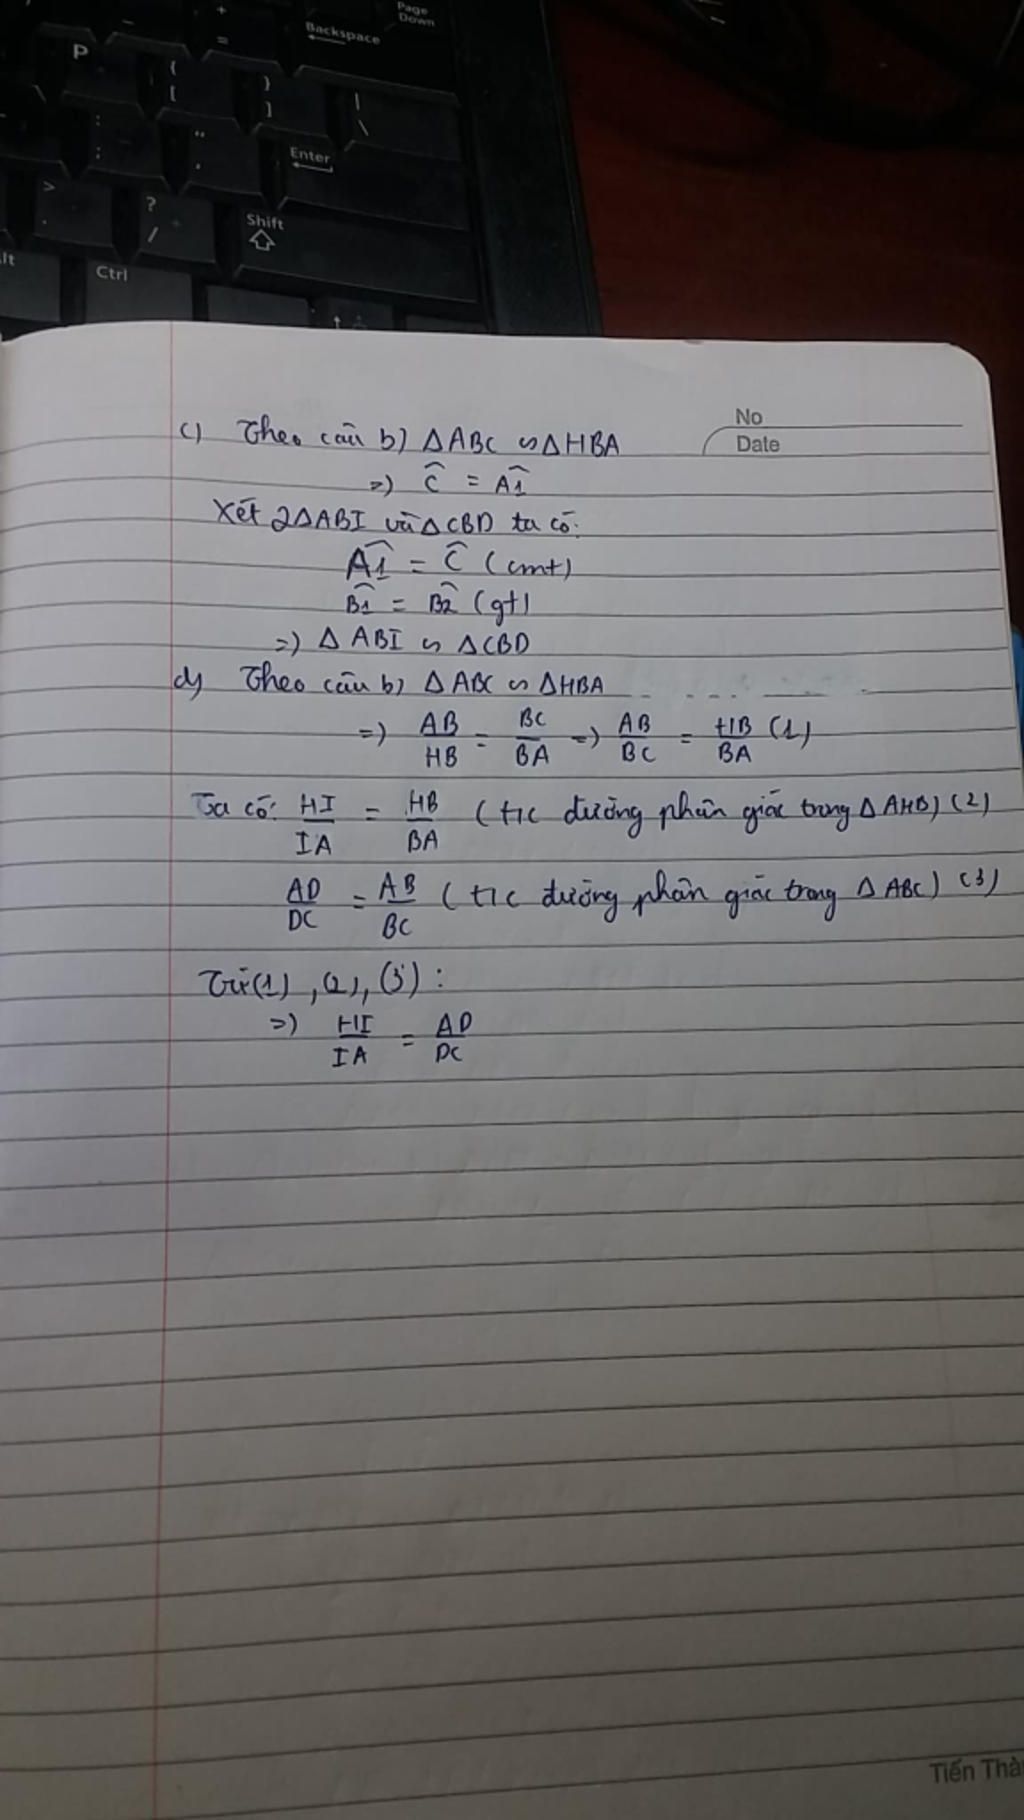 Page Down
Backspace
P
Enter
Shift
Ctrl
No
Date
c) Theo câu b) ΔABC ∽ ΔHBA
=) Ĉ = Â1
Xét 2ΔABI và ΔCBD ta có:
Â1 = Ĉ (cmt)
B̂1 = B̂2 (gt)
=) ΔABI ∽ ΔCBD
d) Theo câu b) ΔABC ∽ ΔHBA
=) AB/HB = BC/BA =) AB/BC = HB/BA (1)
Ta có: HI/IA = HB/BA (t/c đường phân giác trong ΔAHB) (2)
AD/DC = AB/BC (t/c đường phân giác trong ΔABC) (3)
Từ (1), (2), (3) :
=) HI/IA = AD/DC
Tiến Thà